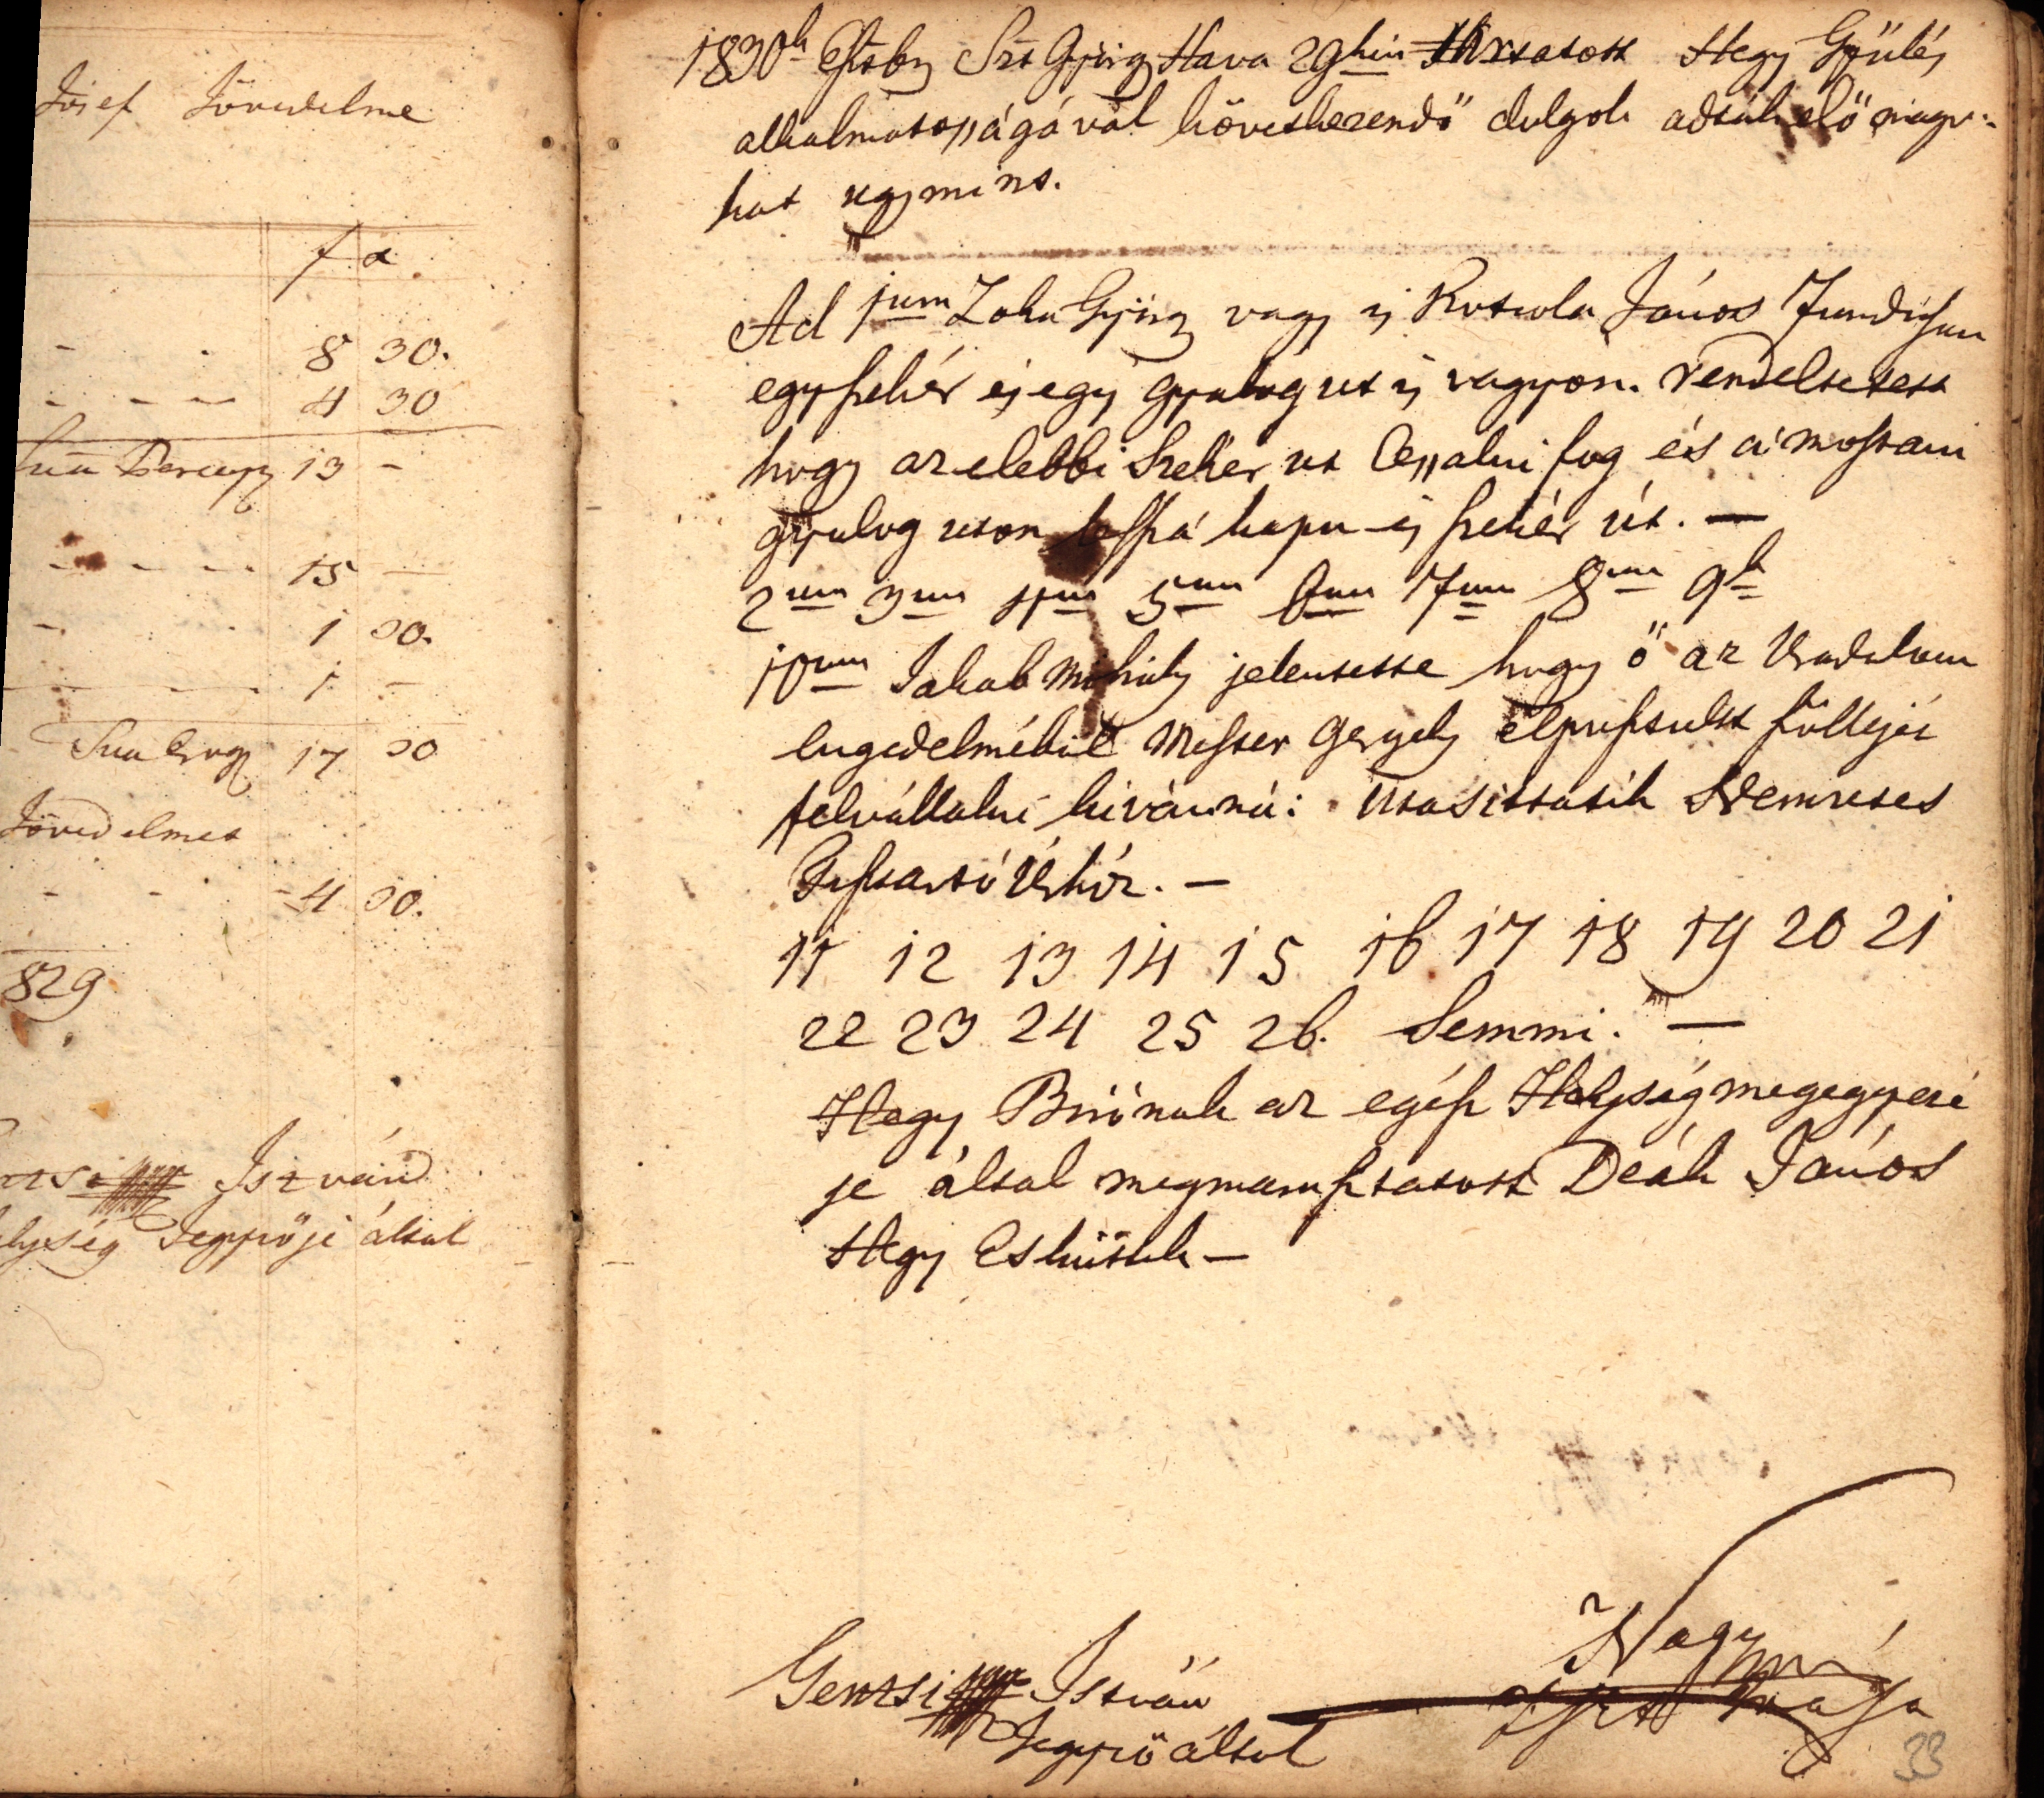 Josef Jövedelme
f x
8 30.
4 30
Sua Percep 13 -
15 -
1 30.
1 -
Sua Erog 17 30
Jövedelmet
4 30.
829
István
Jegyzője által
1830k Esztby Szt György Hava 29kén Tartatott Hegy Gyűlés
alkalmatosságával következendő dolgok adták elő mago-
kat ugymint.
Ad 1um Zoka György vagy is Kotsola János Fundusán
egy szekér és egy gyalog ut is vagyon. rendeltetett
hogy az elebbi Szekér ut Cessalni fog és a mostani
gyalog uton lessz á kapu és szekér út. —
2um 3um 4um 5um 6um 7um 8um 9k
10um Jakab Mihály jelentette hogy ő az Uradalom
engedelméből Mester Gergely elpusztult szöllejét
felvállalni kivánná: Utasittatik Nemzetes
Tisztartó Úrhóz. —
11 12 13 14 15 16 17 18 19 20 21
22 23 24 25 26. Semmi. —
Hegy Birónak az egész Helység megegyezé
se által megmarasztatott Deák János
Hegy Esküttek —
Nagy
Gentsi István
Jegyző által
33